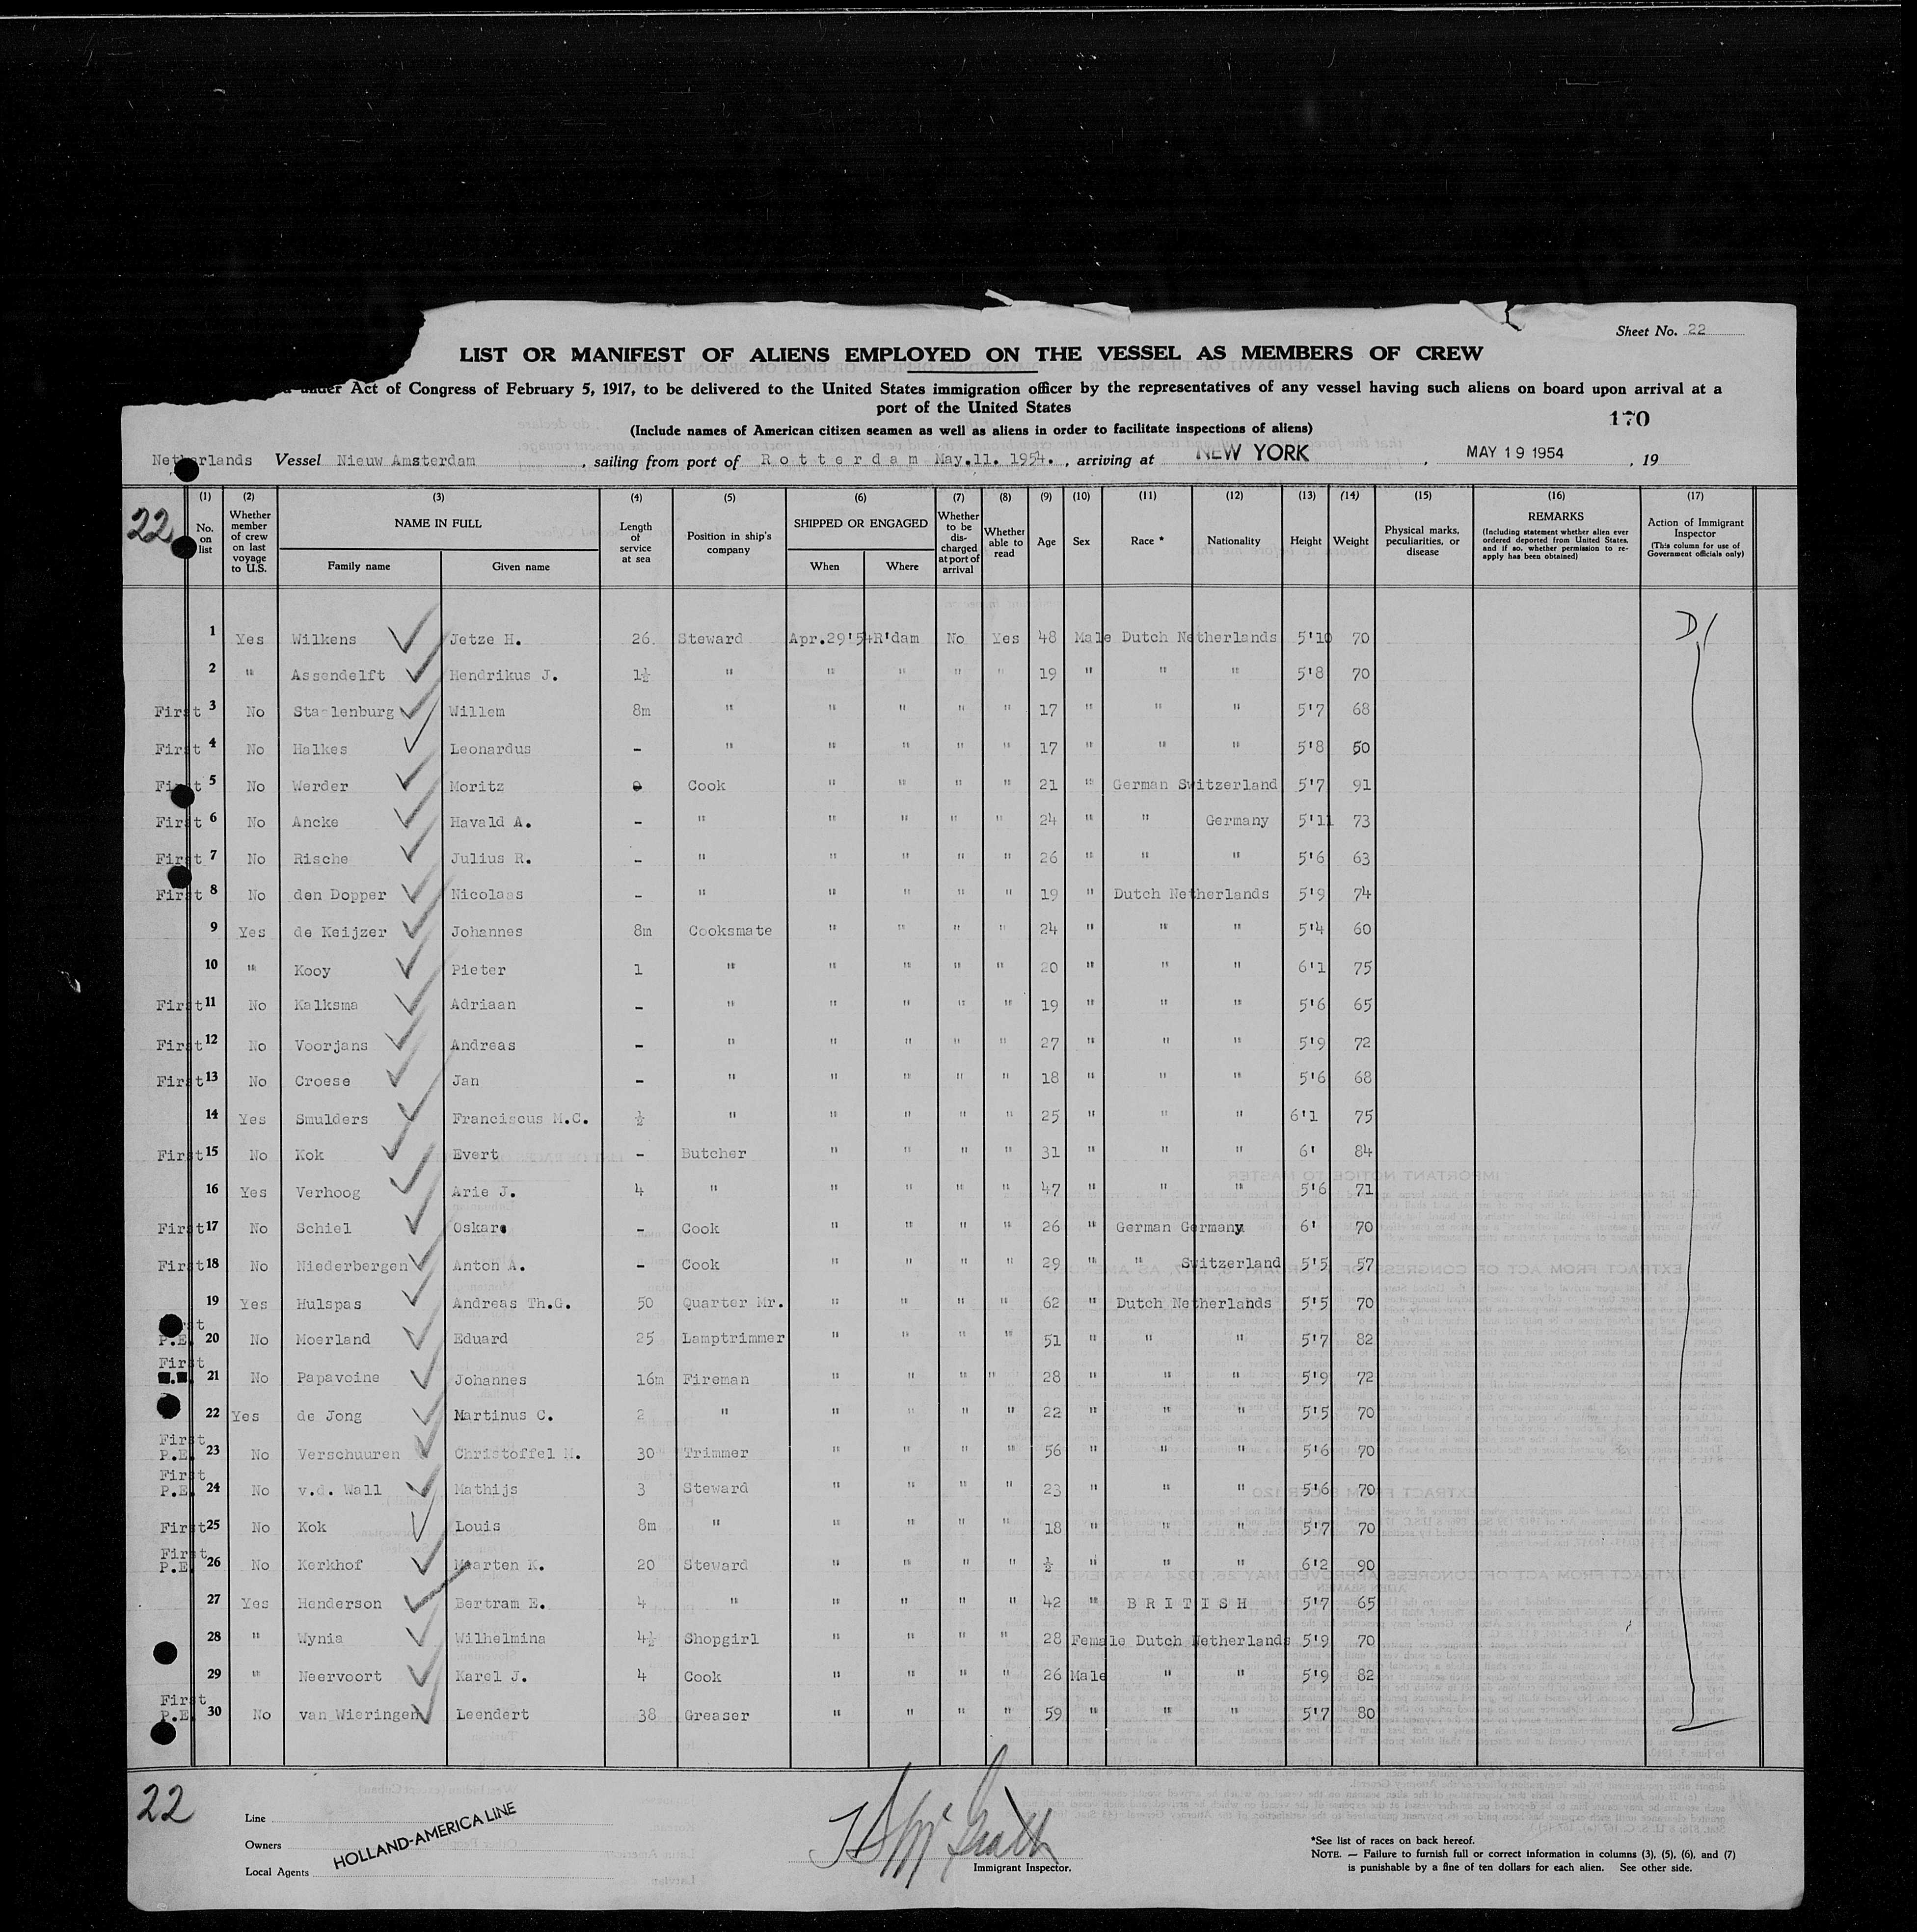 Sheet No. 22
LIST OR MANIFEST OF ALIENS EMPLOYED ON THE VESSEL AS MEMBERS OF CREW
under Act of Congress of February 5, 1917, to be delivered to the United States immigration officer by the representatives of any vessel having such aliens on board upon arrival at a
port of the United States
170
(Include names of American citizen seamen as well as aliens in order to facilitate inspections of aliens)
Netherlands Vessel Nieuw Amsterdam , sailing from port of Rotterdam May.11. 1954. , arriving at NEW YORK , MAY 19 1954 , 19
22
(1) (2) (3) (4) (5) (6) (7) (8) (9) (10) (11) (12) (13) (14) (15) (16) (17)
No. on list Whether member of crew on last voyage to U.S. NAME IN FULL Family name Given name Length of service at sea Position in ship's company SHIPPED OR ENGAGED When Where Whether to be discharged at port of arrival Whether able to read Age Sex Race * Nationality Height Weight Physical marks, peculiarities, or disease REMARKS (Including statement whether alien ever ordered deported from United States, and if so, whether permission to re-apply has been obtained) Action of Immigrant Inspector (This column for use of Government officials only)
1 Yes Wilkens Jetze H. 26 Steward Apr.29'54 R'dam No Yes 48 Male Dutch Netherlands 5'10 70
2 " Assendelft Hendrikus J. 1½ " " " " " 19 " " " 5'8 70
First 3 No Staalenburg Willem 8m " " " " " 17 " " " 5'7 68
First 4 No Halkes Leonardus - " " " " " 17 " " " 5'8 50
First 5 No Werder Moritz Cook " " " " 21 " German Switzerland 5'7 91
First 6 No Ancke Havald A. - " " " " " 24 " " Germany 5'11 73
First 7 No Rische Julius R. - " " " " " 26 " " " 5'6 63
First 8 No den Dopper Nicolaas - " " " " " 19 " Dutch Netherlands 5'9 74
9 Yes de Keijzer Johannes 8m Cooksmate " " " " 24 " " " 5'4 60
10 " Kooy Pieter 1 " " " " " 20 " " " 6'1 75
First 11 No Kalksma Adriaan - " " " " " 19 " " " 5'6 65
First 12 No Voorjans Andreas - " " " " " 27 " " " 5'9 72
First 13 No Croese Jan - " " " " " 18 " " " 5'6 68
14 Yes Smulders Franciscus M.C. ½ " " " " " 25 " " " 6'1 75
First 15 No Kok Evert - Butcher " " " " 31 " " " 6' 84
16 Yes Verhoog Arie J. 4 " " " " " 47 " " " 5'6 71
First 17 No Schiel Oskar - Cook " " " " 26 " German Germany 6' 70
First 18 No Niederbergen Anton A. - Cook " " " " 29 " " Switzerland 5'5 57
19 Yes Hulspas Andreas Th.G. 50 Quarter Mr. " " " " 62 " Dutch Netherlands 5'5 70
First P.E. 20 No Moerland Eduard 25 Lamptrimmer " " " " 51 " " " 5'7 82
First 21 No Papavoine Johannes 16m Fireman " " " " 28 " " " 5'9 72
22 Yes de Jong Martinus C. 2 " " " " " 22 " " " 5'5 70
First P.E. 23 No Verschuuren Christoffel M. 30 Trimmer " " " " 56 " " " 5'6 70
First P.E. 24 No v.d. Wall Mathijs 3 Steward " " " " 23 " " " 5'6 70
First 25 No Kok Louis 8m " " " " " 18 " " " 5'7 70
First P.E. 26 No Kerkhof Maarten K. 20 Steward " " " " ½ " " " 6'2 90
27 Yes Henderson Bertram E. 4 " " " " " 42 " BRITISH 5'7 65
28 " Wynia Wilhelmina 4½ Shopgirl " " " " 28 Female Dutch Netherlands 5'9 70
29 " Neervoort Karel J. 4 Cook " " " " 26 Male " " 5'9 82
First P.E. 30 No van Wieringen Leendert 38 Greaser " " " " 59 " " " 5'7 80
22
Line
Owners
Local Agents
HOLLAND-AMERICA LINE
Immigrant Inspector.
*See list of races on back hereof.
NOTE. — Failure to furnish full or correct information in columns (3), (5), (6), and (7)
is punishable by a fine of ten dollars for each alien. See other side.